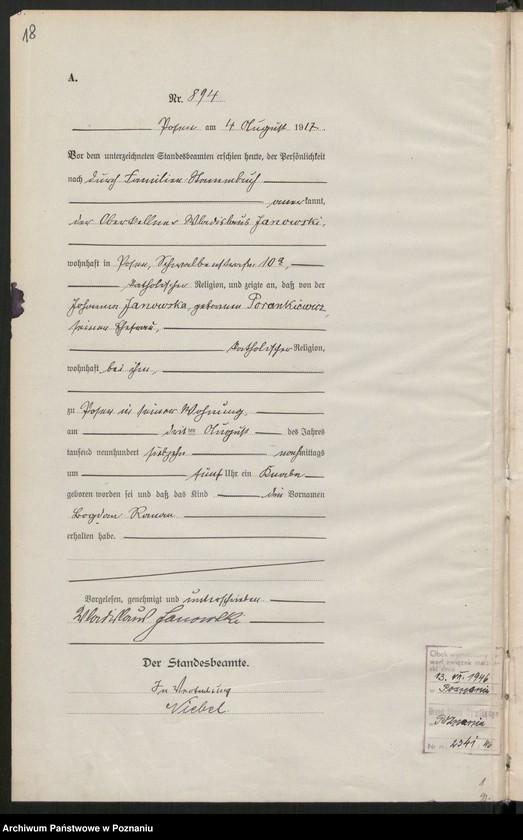 18
A.
Nr. 894
Posen am 4 August 1917.
Vor dem unterzeichneten Standesbeamten erschien heute, der Persönlichkeit
nach durch Familien-Stammbuch
anerkannt,
der Oberkellner Wladislaus Janowski,
wohnhaft in Posen, Schwalbenstrasse 10a,
katholischer Religion, und zeigte an, daß von der
Johanna Janowska, geborenen Porankiewicz,
seiner Ehefrau,
katholischer Religion,
wohnhaft bei ihm,
zu Posen in seiner Wohnung,
am dritten August des Jahres
tausend neunhundert siebzehn nachmittags
um fünf Uhr ein Knabe
geboren worden sei und daß das Kind den Vornamen
Bogdan Roman
erhalten habe.
Vorgelesen, genehmigt und unterschrieben
Wladislaus Janowski
Der Standesbeamte.
In Vertretung
Niebel.
13. VII. 1946
w Poznaniu
Poznaniu
Nr 2341/46
Archiwum Państwowe w Poznaniu